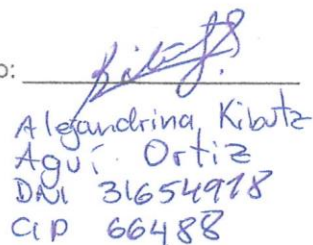 o:
Alejandrina Kibutz
Aguí Ortiz
DNI 31654978
CIP 66488